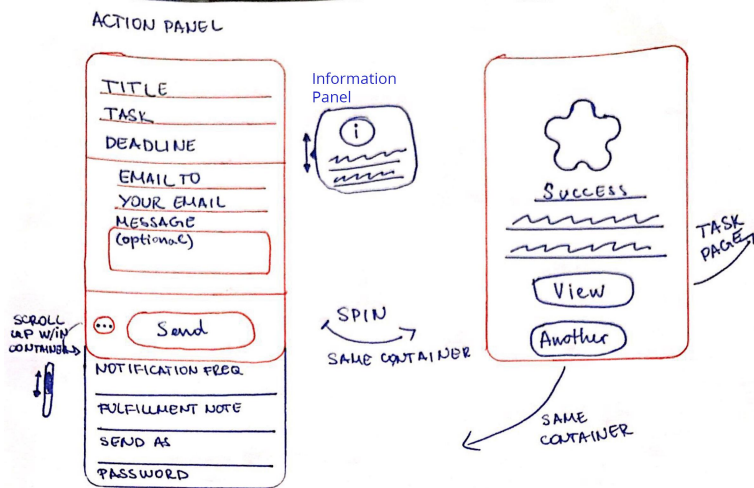 ACTION PANEL
TITLE
TASK
DEADLINE
EMAIL TO
YOUR EMAIL
MESSAGE
(optional)
...
Send
SCROLL
UP W/IN
CONTAINER
NOTIFICATION FREQ
FULFILLMENT NOTE
SEND AS
PASSWORD
Information
Panel
i
SPIN
SAME CONTAINER
SUCCESS
View
Another
TASK
PAGE
SAME
CONTAINER